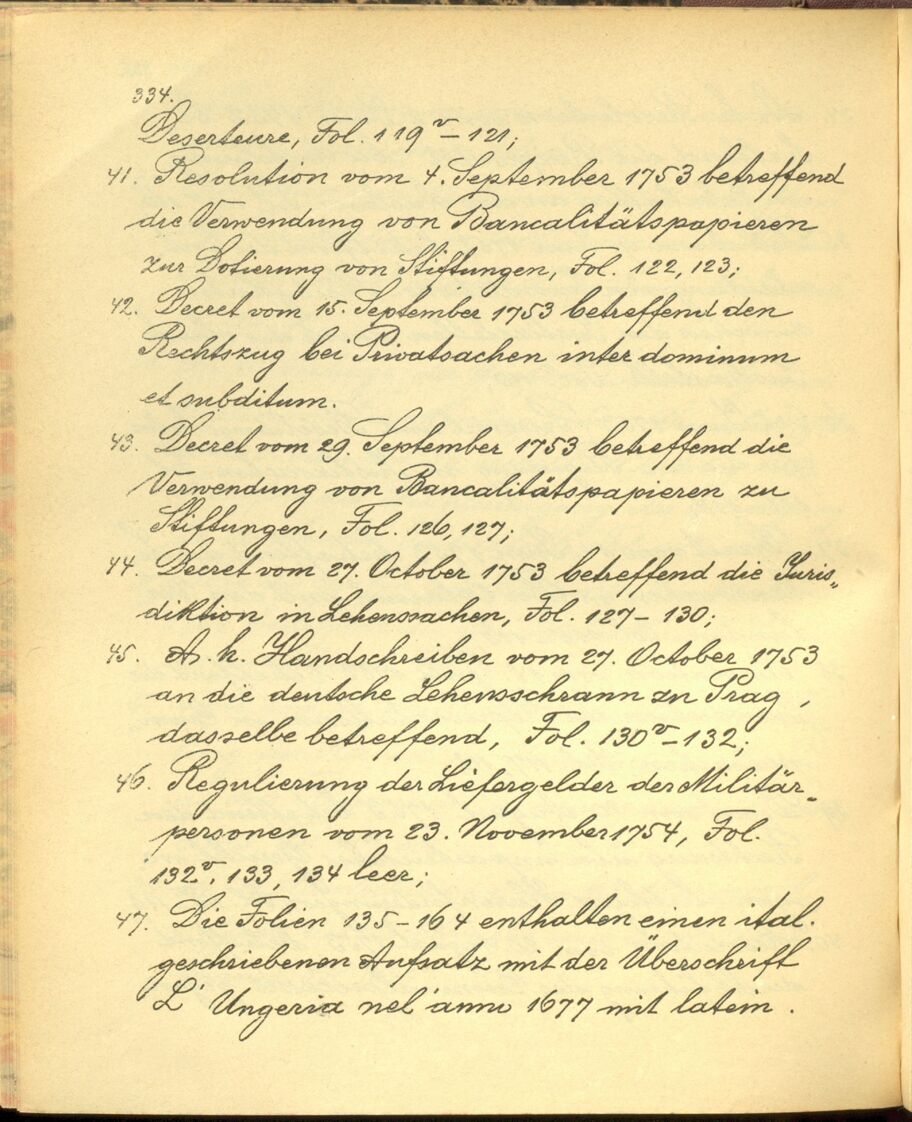 334.
Deserteure, Fol. 119v – 121;
41. Resolution vom 4. September 1753 betreffend
die Verwendung von Bancalitätspapieren
zur Dotierung von Stiftungen, Fol. 122, 123;
42. Decret vom 15. September 1753 betreffend den
Rechtszug bei Privatsachen inter dominum
et subditum.
43. Decret vom 29. September 1753 betreffend die
Verwendung von Bancalitätspapieren zu
Stiftungen, Fol. 126, 127;
44. Decret vom 27. October 1753 betreffend die Juris„
diktion in Lehenssachen, Fol. 127 – 130;
45. A. h. Handschreiben vom 27. October 1753
an die deutsche Lehensschrann zu Prag,
dasselbe betreffend, Fol. 130v – 132;
46. Regulierung der Liefergelder der Militär-
personen vom 23. November 1754, Fol.
132v, 133, 134 leer;
47. Die Folien 135 – 164 enthalten einen ital.
geschriebenen Aufsatz mit der Überschrift
L' Ungeria nel' anno 1677 mit latein.